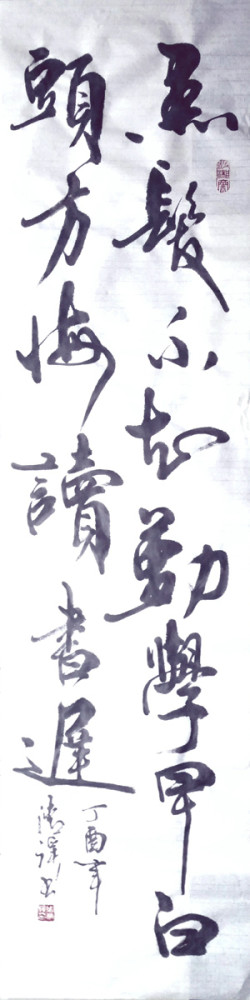 黑髮不知勤學早白
頭方悔讀書遲
丁酉年